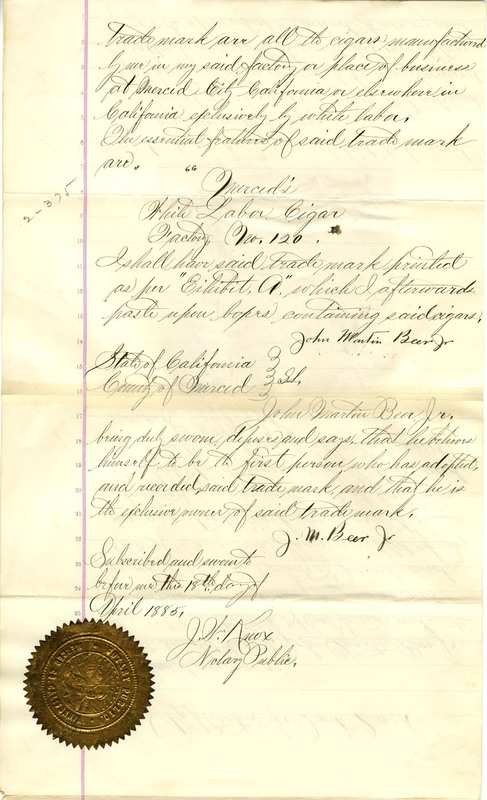 Trade mark are all the cigars manufactured
by me in my said factory or place of business
at Merced City California or elsewhere in
California exclusively by white labor.
The essential features of said trade mark
are, "
Merced's
White Labor Cigar
Factory No. 120."
2-375
I shall have said trade mark printed
as per "Exhibit A", which I afterward
paste upon boxes containing said cigars.
John Martin Beer Jr
State of California
County of Merced } SS.
John Martin Beer Jr.
being duly sworn, deposes and says, that he believes
himself to be the first person who has adopted,
and recorded said trade mark, and that he is
the exclusive owner of said trade mark.
J. M. Beer Jr
Subscribed and sworn to
before me this 18th day of
April 1885.
Knox
Notary Public.